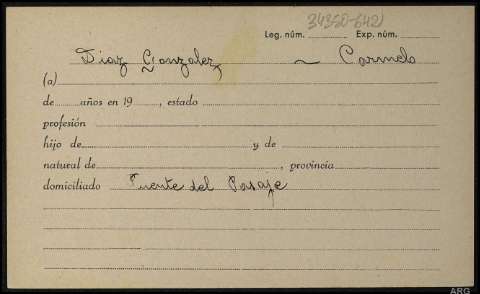 Leg. núm. 34350-642 Exp. núm.
Diaz Gonzalez ~ Carmelo
(a)
de años en 19 , estado
profesión
hijo de y de
natural de , provincia
domiciliado Puente del Pasaje
ARG